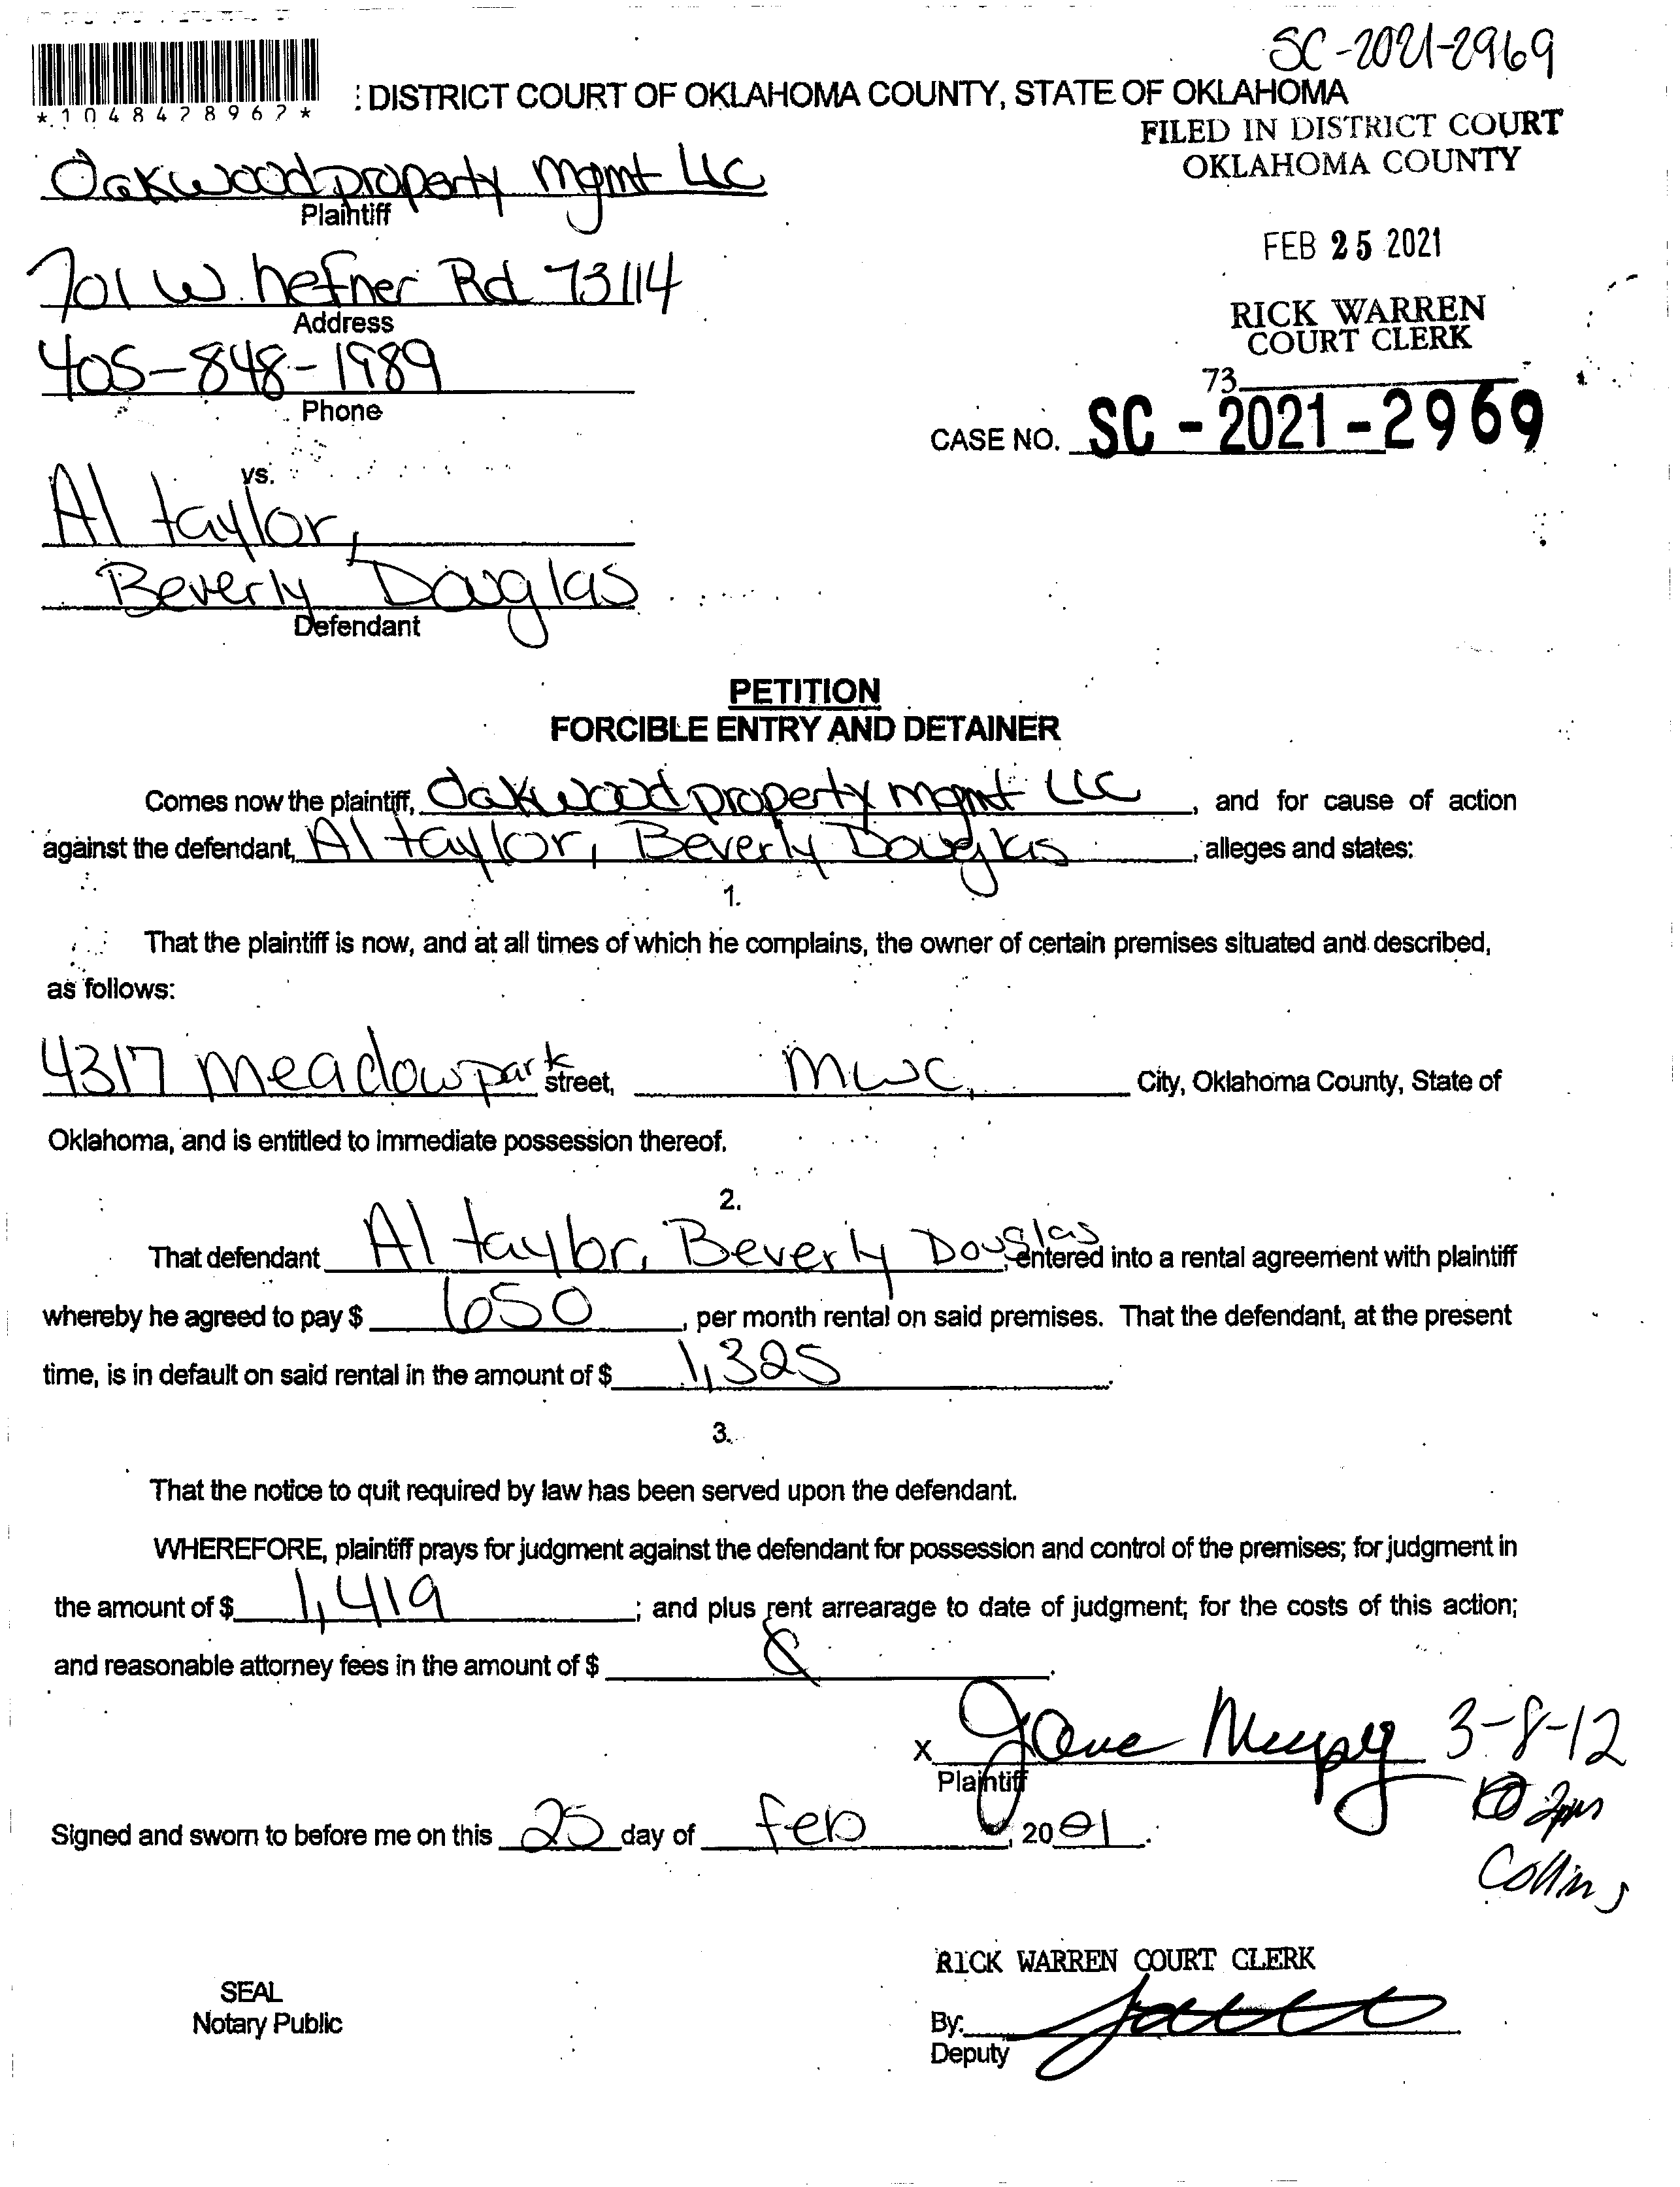 SC-2021-2969
*1048428962*
: DISTRICT COURT OF OKLAHOMA COUNTY, STATE OF OKLAHOMA
FILED IN DISTRICT COURT
OKLAHOMA COUNTY
Oakwood property mgmt LLC
Plaintiff
FEB 25 2021
701 W. hefner Rd 73114
Address
RICK WARREN
COURT CLERK
405-848-1989
Phone
73
CASE NO. SC - 2021 - 2969
vs.
Al taylor,
Beverly Douglas
Defendant
PETITION
FORCIBLE ENTRY AND DETAINER
Comes now the plaintiff, Oakwood property mgmt LLC, and for cause of action
against the defendant, Al taylor, Beverly Douglas, alleges and states:
1.
That the plaintiff is now, and at all times of which he complains, the owner of certain premises situated and described,
as follows:
4317 meadowpark street, mwc City, Oklahoma County, State of
Oklahoma, and is entitled to immediate possession thereof.
2.
That defendant Al taylor, Beverly Douglas, entered into a rental agreement with plaintiff
whereby he agreed to pay $ 650, per month rental on said premises. That the defendant, at the present
time, is in default on said rental in the amount of $ 1,325.
3.
That the notice to quit required by law has been served upon the defendant.
WHEREFORE, plaintiff prays for judgment against the defendant for possession and control of the premises; for judgment in
the amount of $ 1,419; and plus rent arrearage to date of judgment; for the costs of this action;
and reasonable attorney fees in the amount of $
x Jane 3-8-12
Plaintiff
2pm
Signed and sworn to before me on this 25 day of feb, 2021.
Collins
RICK WARREN COURT CLERK
SEAL
Notary Public
By:
Deputy